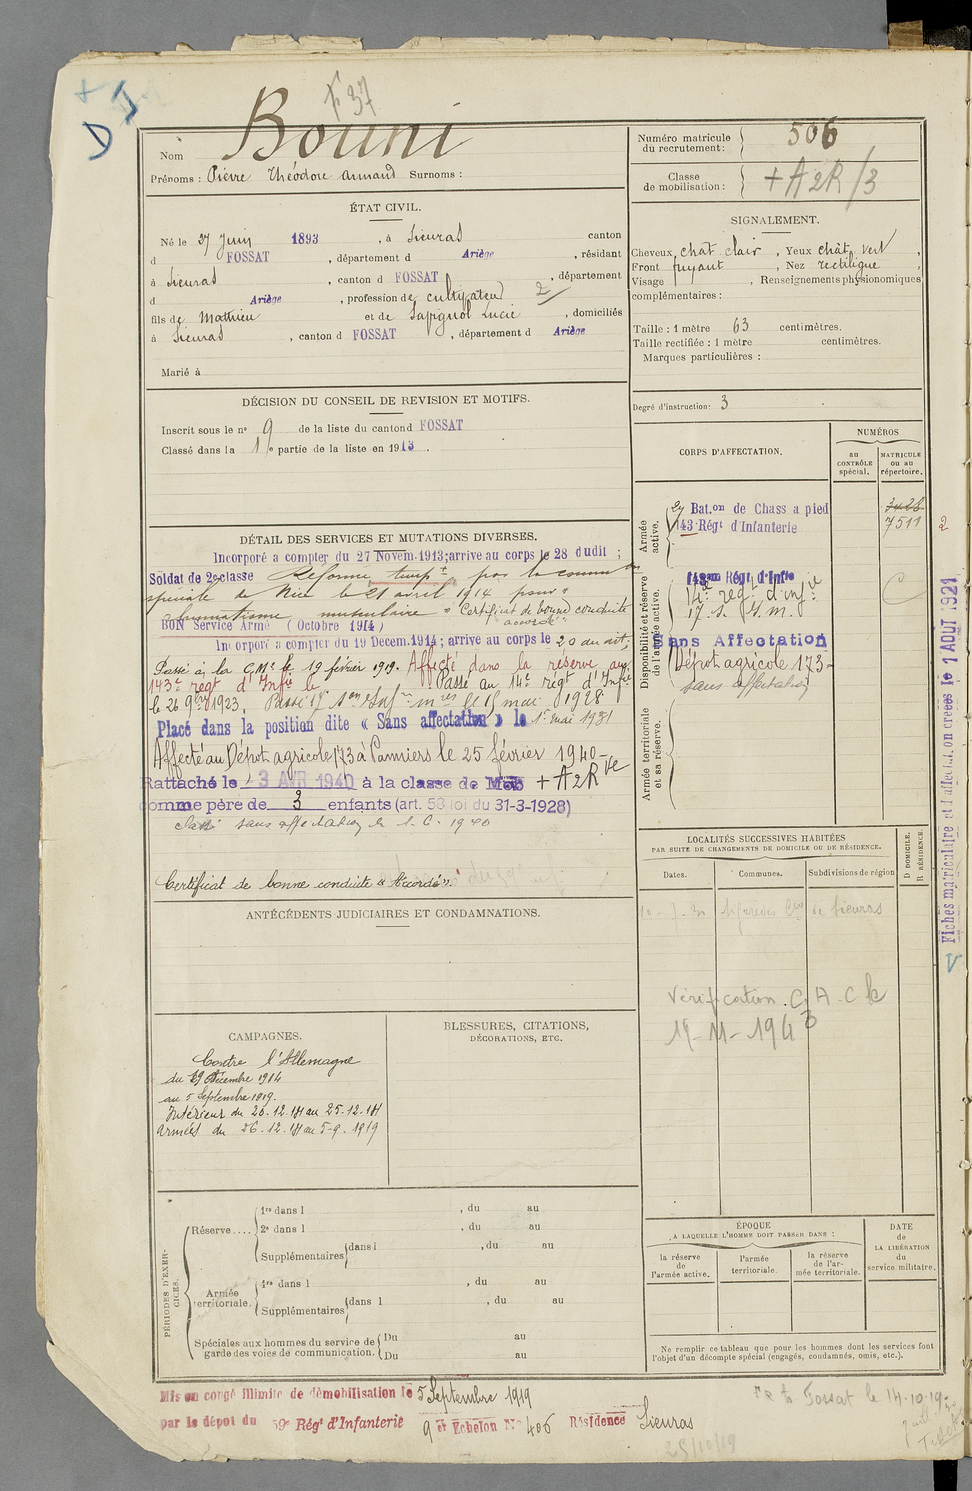 F 37
D
Nom Bouni
Prénoms : Pierre Théodore Armand Surnoms :
Numéro matricule du recrutement : 506
Classe de mobilisation : + A 2R /3
ÉTAT CIVIL.
Né le 27 Juin 1893, à Sieuras canton
d FOSSAT, département d Ariège, résidant
à Sieuras, canton d FOSSAT, département
d Ariège, profession de cultivateur 2
fils de Mathieu et de Sapignol Lucie, domiciliés
à Sieuras, canton d FOSSAT, département d Ariège
Marié à
SIGNALEMENT.
Cheveux chat clair, Yeux chât. vert,
Front fuyant, Nez rectiligne,
Visage , Renseignements physionomiques
complémentaires :
Taille : 1 mètre 63 centimètres.
Taille rectifiée : 1 mètre centimètres.
Marques particulières :
Degré d'instruction : 3
DÉCISION DU CONSEIL DE REVISION ET MOTIFS.
Inscrit sous le n° 9 de la liste du canton d FOSSAT
Classé dans la 1re partie de la liste en 1913.
DÉTAIL DES SERVICES ET MUTATIONS DIVERSES.
Incorporé a compter du 27 Novem. 1913; arrive au corps le 28 dudit ;
Soldat de 2e classe Réformé tempre par la comm on
spéciale de Nice le 21 avril 1914 pour "
rhumatisme musculaire " Certificat de bonne conduite
accordé "
BON Service Armé ( Octobre 1914 )
Incorporé a compter du 19 Decem. 1914 ; arrive au corps le 20 au dit;
Passé à la C.M. le 19 février 1919. Affecté dans la réserve au
143e régt d'Infie le Passé au 14e régt d'Infie
le 26 9bre 1923. Passé 17 Son Inf m res le 15 mai 1928
Placé dans la position dite « Sans affectation » le 1er mai 1931
Affecté au Dépôt agricole 173 à Pamiers le 25 février 1940-
Rattaché le 3 AVR 1940 à la classe de Mob + A 2R ve
comme père de 3 enfants (art. 58 loi du 31-3-1928)
classé sans affectation le 1. 6. 1940
Certificat de bonne conduite « Accordé ».
CORPS D'AFFECTATION.
NUMÉROS
au CONTRÔLE spécial.
MATRICULE ou au répertoire.
Armée active.
27 Bat.on de Chass a pied
143 Régt d'Infanterie
3426
7511
2
Disponibilité et réserve de l'armée active.
143em Régt d'Infie
14e régt d'infie
17. S. I. M.
Sans Affectation
Dépôt agricole 173-
sans affectation
C
Armée territoriale et sa réserve.
LOCALITÉS SUCCESSIVES HABITÉES
PAR SUITE DE CHANGEMENTS DE DOMICILE OU DE RÉSIDENCE.
Dates.
Communes.
Subdivisions de région
D DOMICILE. R RÉSIDENCE.
de Sieuras
Vérification. C A. C k
19-11-1943
Fiches matriculaire et d'affectation créées le 1 AOUT 1921
V
ANTÉCÉDENTS JUDICIAIRES ET CONDAMNATIONS.
CAMPAGNES.
Contre l'Allemagne
du 19 Décembre 1914
au 5 Septembre 1919.
Intérieur du 26.12.14 au 25.12.14
Armées du 26.12.14 au 5-9-1919
BLESSURES, CITATIONS,
DÉCORATIONS, ETC.
PÉRIODES D'EXERCICES.
Réserve.... 1re dans l , du au
2e dans l , du au
Supplémentaires dans l , du au
Armée territoriale. 1re dans l , du au
Supplémentaires dans l , du au
Spéciales aux hommes du service de garde des voies de communication. Du au
Du au
ÉPOQUE
A LAQUELLE L'HOMME DOIT PASSER DANS :
la réserve de l'armée active.
l'armée territoriale.
la réserve de l'armée territoriale.
DATE de LA LIBÉRATION du service militaire.
Ne remplir ce tableau que pour les hommes dont les services font
l'objet d'un décompte spécial (engagés, condamnés, omis, etc.).
Mis en congé illimité de démobilisation le 5 Septembre 1919
par le dépôt du 59e Régt d'Infanterie 9 et Echelon N° 406 Résidence Sieuras
Fossat le 14-10-19
25/10/19